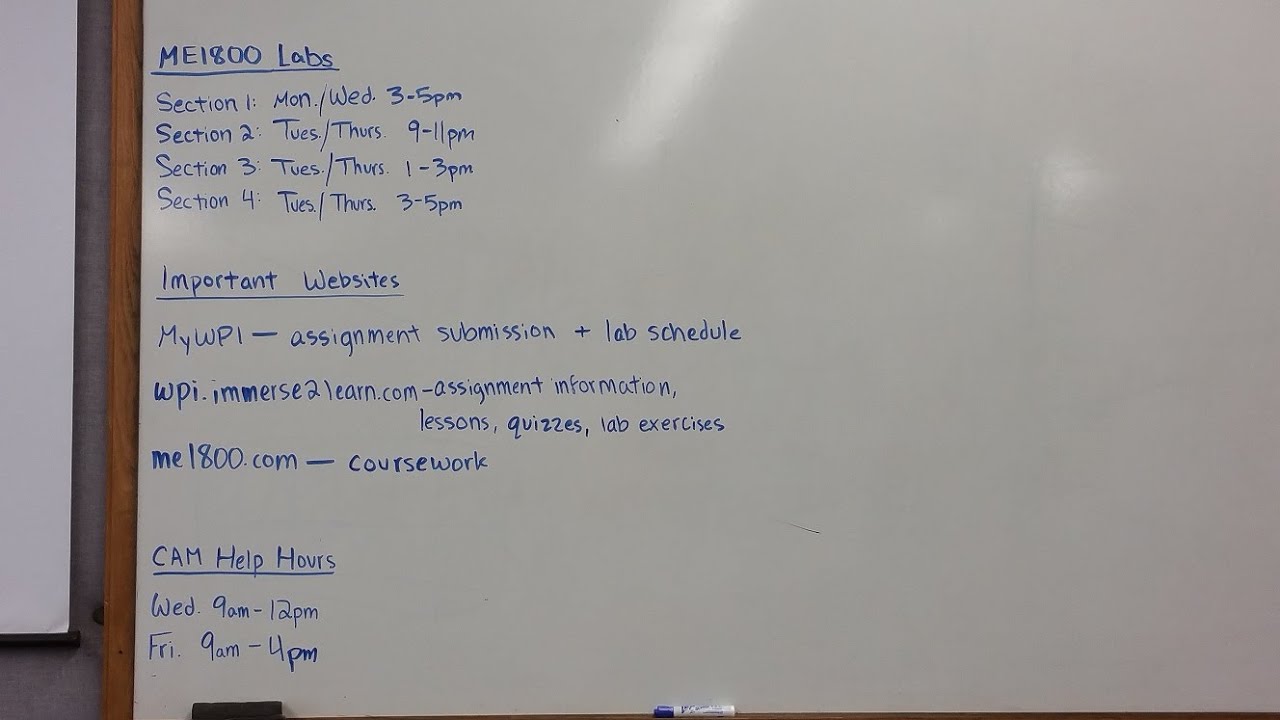 ME1800 Labs
Section 1: Mon./Wed. 3-5pm
Section 2: Tues./Thurs. 9-11pm
Section 3: Tues./Thurs. 1-3pm
Section 4: Tues./Thurs. 3-5pm
Important Websites
MyWPI — assignment submission + lab schedule
wpi.immerse2learn.com-assignment information,
lessons, quizzes, lab exercises
me1800.com — coursework
CAM Help Hours
Wed. 9am-12pm
Fri. 9am-4pm